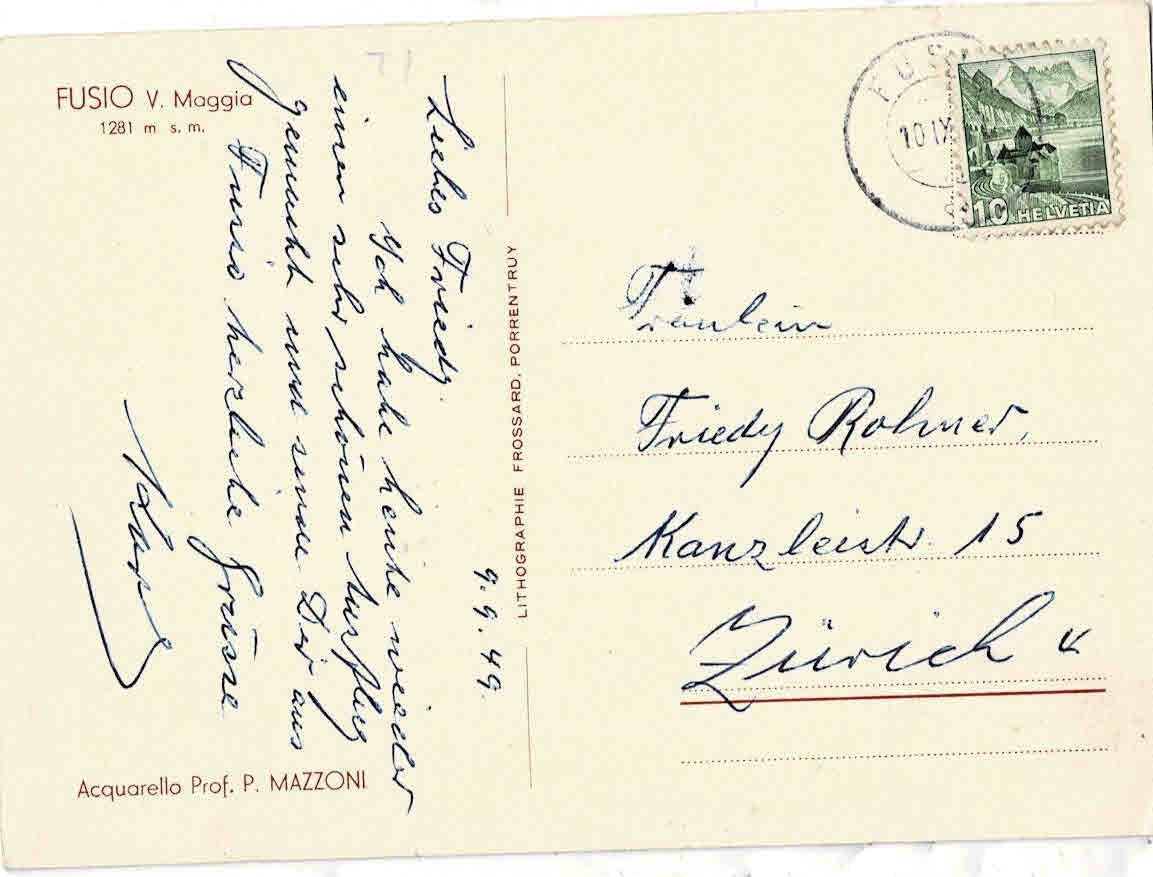 FUSIO V. Maggia
1281 m s. m.
9.9.49.
Liebes Friedy.
Ich habe heute wieder
einen sehr schönen Ausflug
gemacht und sende Dir aus
Fusio herzliche Grüsse
Acquarello Prof. P. MAZZONI
LITHOGRAPHIE FROSSARD, PORRENTRUY
FUS
10 IX
10 HELVETIA
Fräulein
Friedy Rohner,
Kanzleistr. 15
Zürich 4